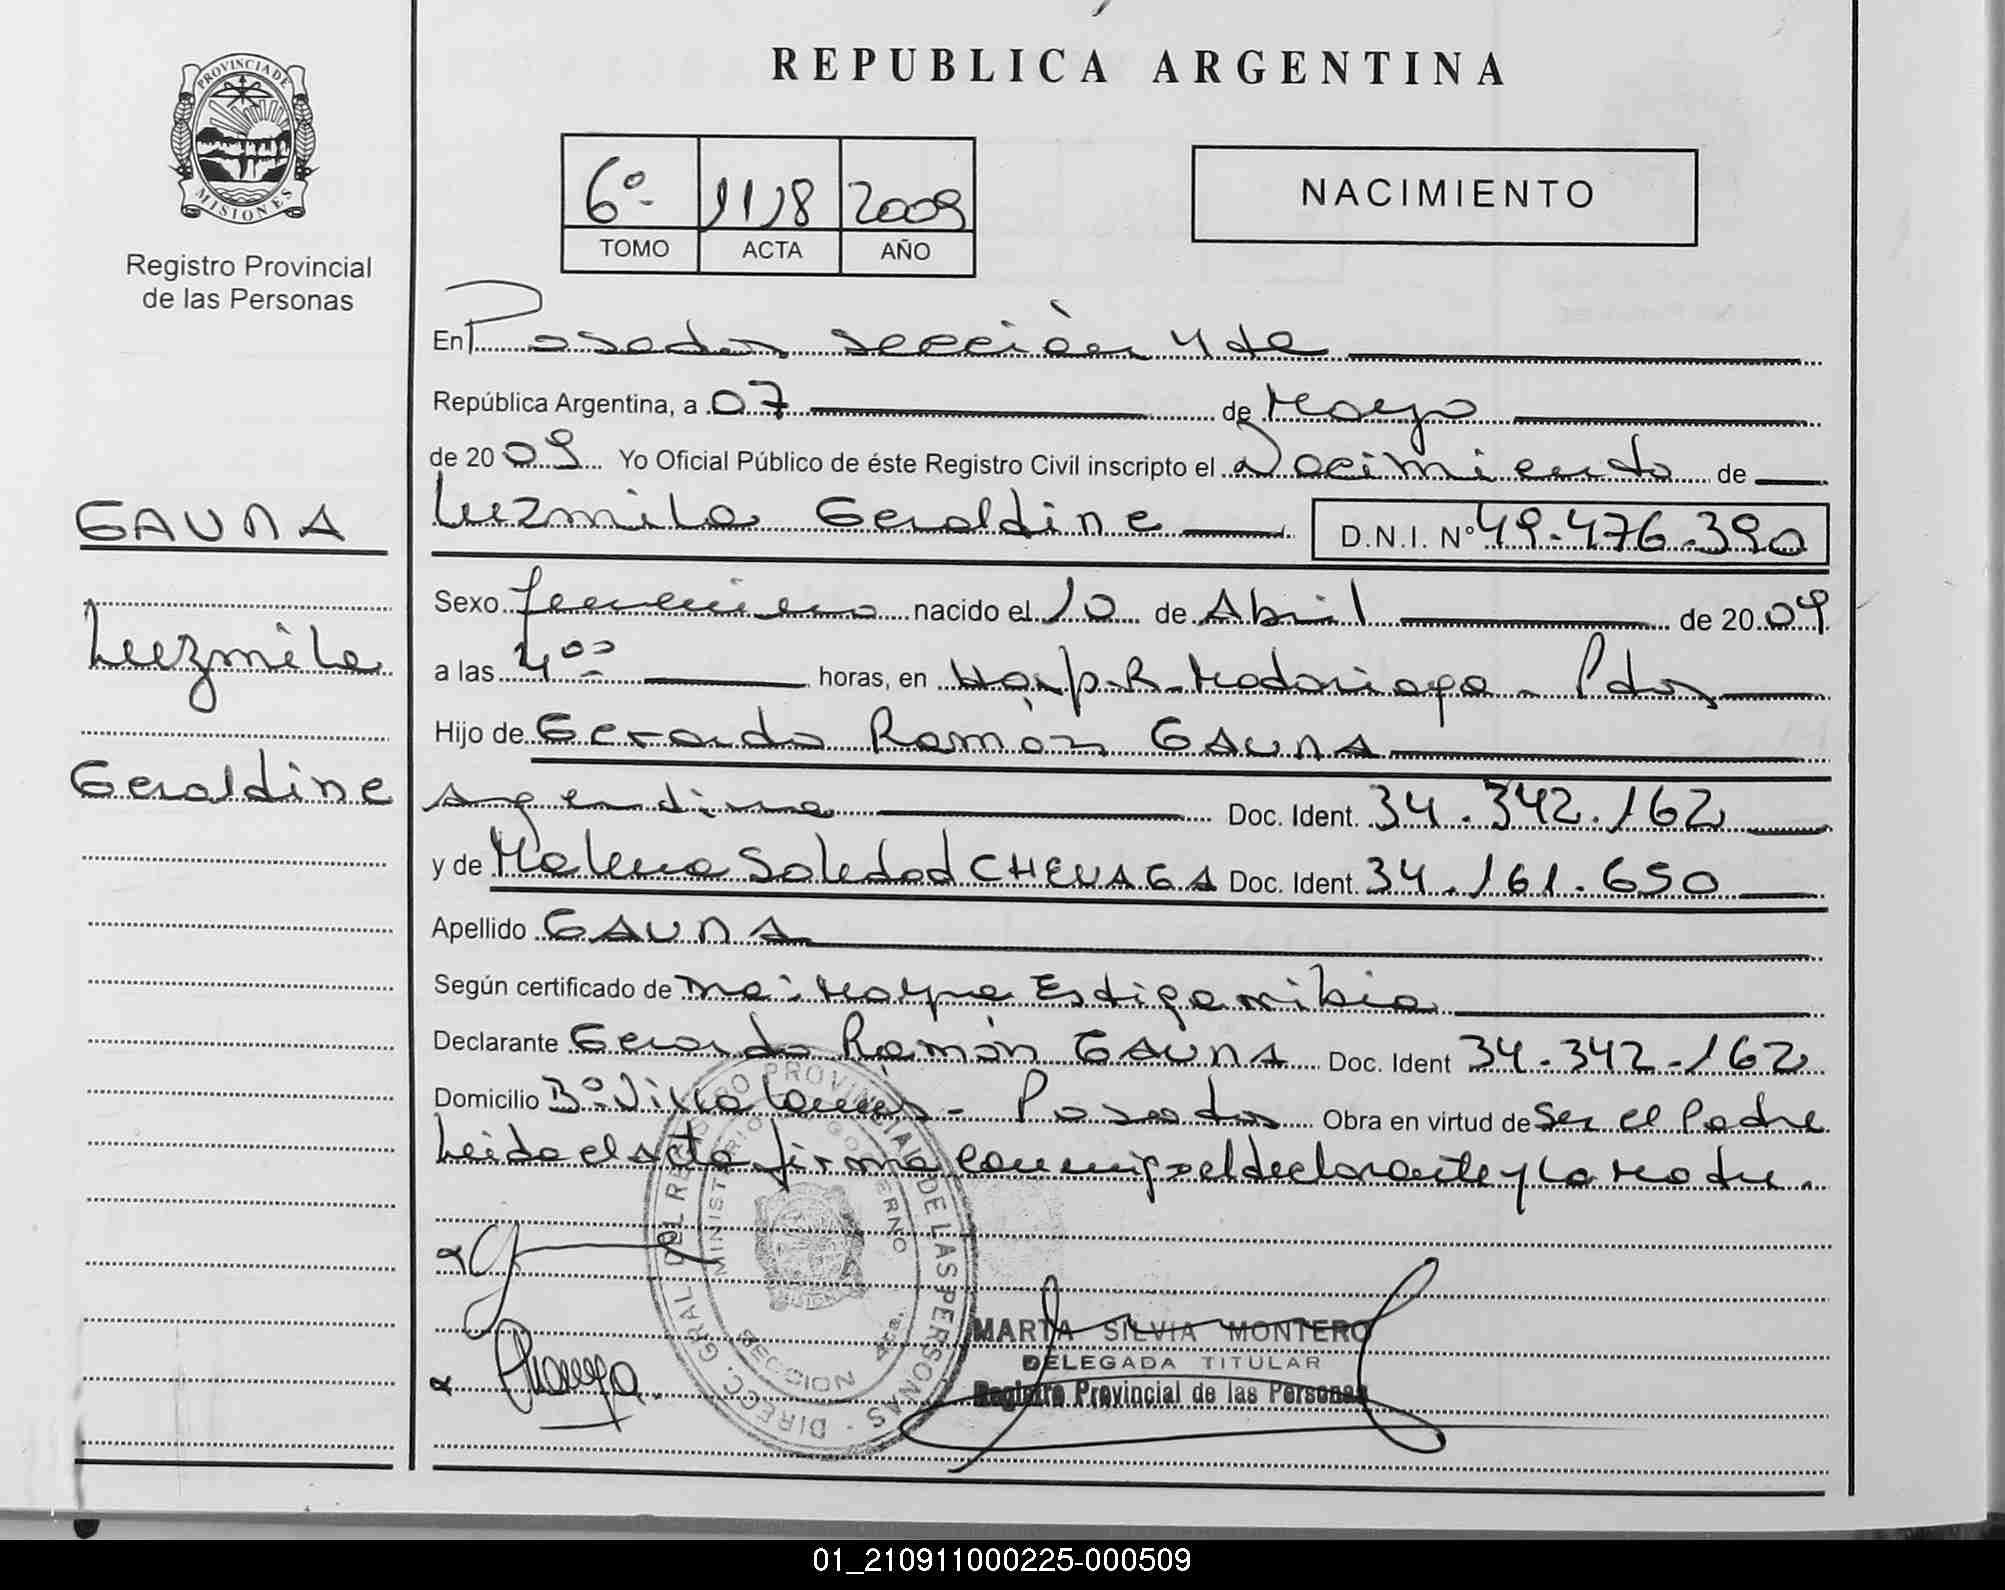 REPUBLICA ARGENTINA
PROVINCIA DE
MISIONES
Registro Provincial
de las Personas
6º 1118 2009
TOMO ACTA AÑO
NACIMIENTO
En Posadas sección 4 ta
República Argentina, a 07 de Mayo
de 2009 Yo Oficial Público de éste Registro Civil inscripto el Nacimiento de
Luzmila Geraldine D.N.I. Nº 49.476.390
Sexo femenino nacido el 10 de Abril de 2009
a las 4 00 horas, en Hosp. R. Madariaga - Pdas
Hijo de Gerardo Ramón GAUNA
Argentina Doc. Ident. 34.342.162
y de Malena Soledad Doc. Ident. 34.161.650
Apellido GAUNA
Según certificado de Mayra Estigarribia
Declarante Gerardo Ramón GAUNA Doc. Ident 34.342.162
Domicilio Bº Villa - Posadas Obra en virtud de Ser el Padre
Leida el Acta firma conmigo el declarante y la Madre.
GAUNA
Luzmila
Geraldine
DIRECC. GRAL DEL REGISTRO PROVINCIAL DE LAS PERSONAS
MINISTERIO DE GOBIERNO
SECCION 4ta.
MARTA SILVIA MONTERO
DELEGADA TITULAR
Registro Provincial de las Personas
01_210911000225-000509